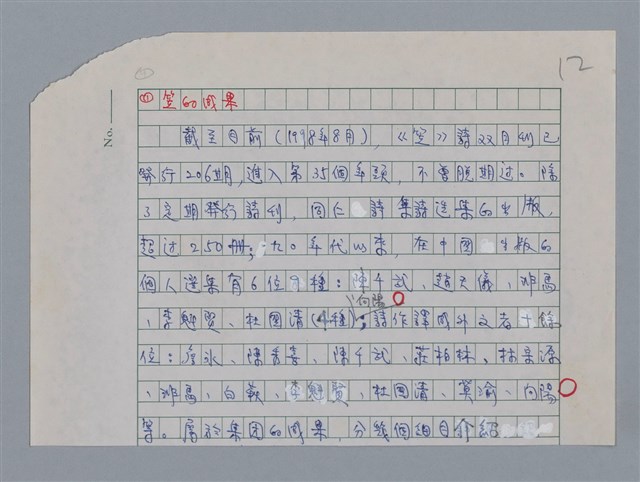 12
No.
(1) 笠的成果
截至目前(1998年8月),《笠》詩双月刊已
發行206期,進入第35個年頭,不曾脱期过。除
了定期發行詩刊,同仁詩集詩选集的出版,
超过250冊;九〇年代以來,在中國出版的
個人選集有6位種:陳千武、趙天儀、非馬
向陽
、李魁賢、杜國清(4種);詩作譯成外文者十餘
位:詹冰、陳秀喜、陳千武、莊柏林、林宗源
、非馬、白萩、李魁賢、杜國清、莫渝、向陽
等。屬於集团的成果,分幾個細目介紹